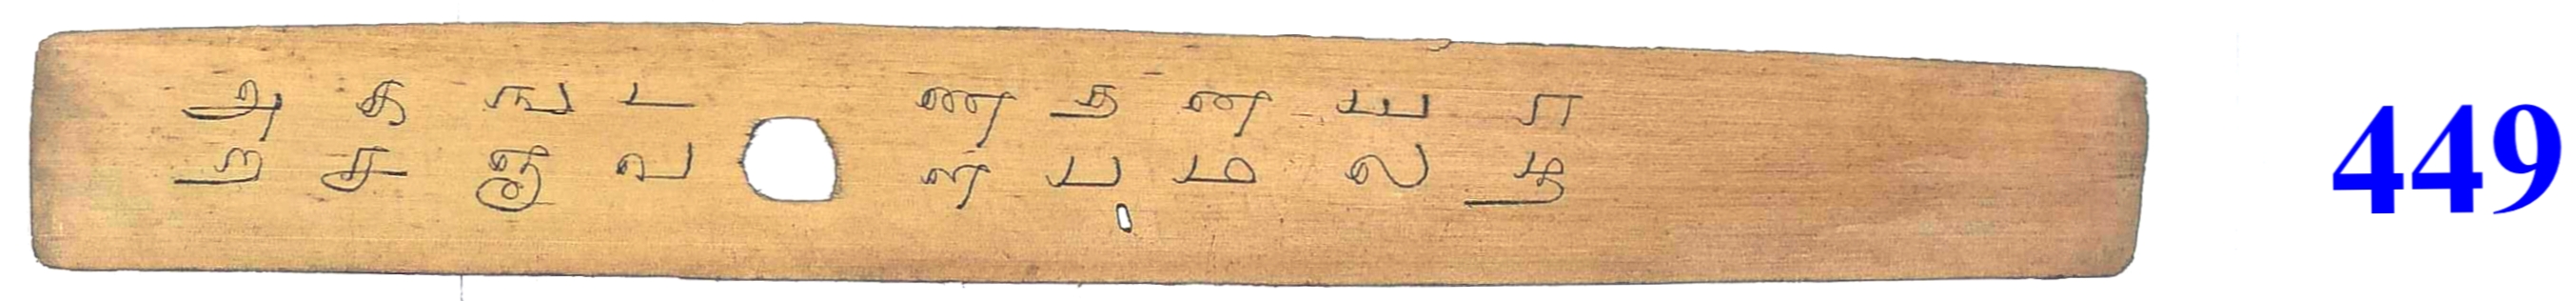 அ க ங ட ண த ன ய ர
ற ச ஞ வ ள ப ம ல ழ
449